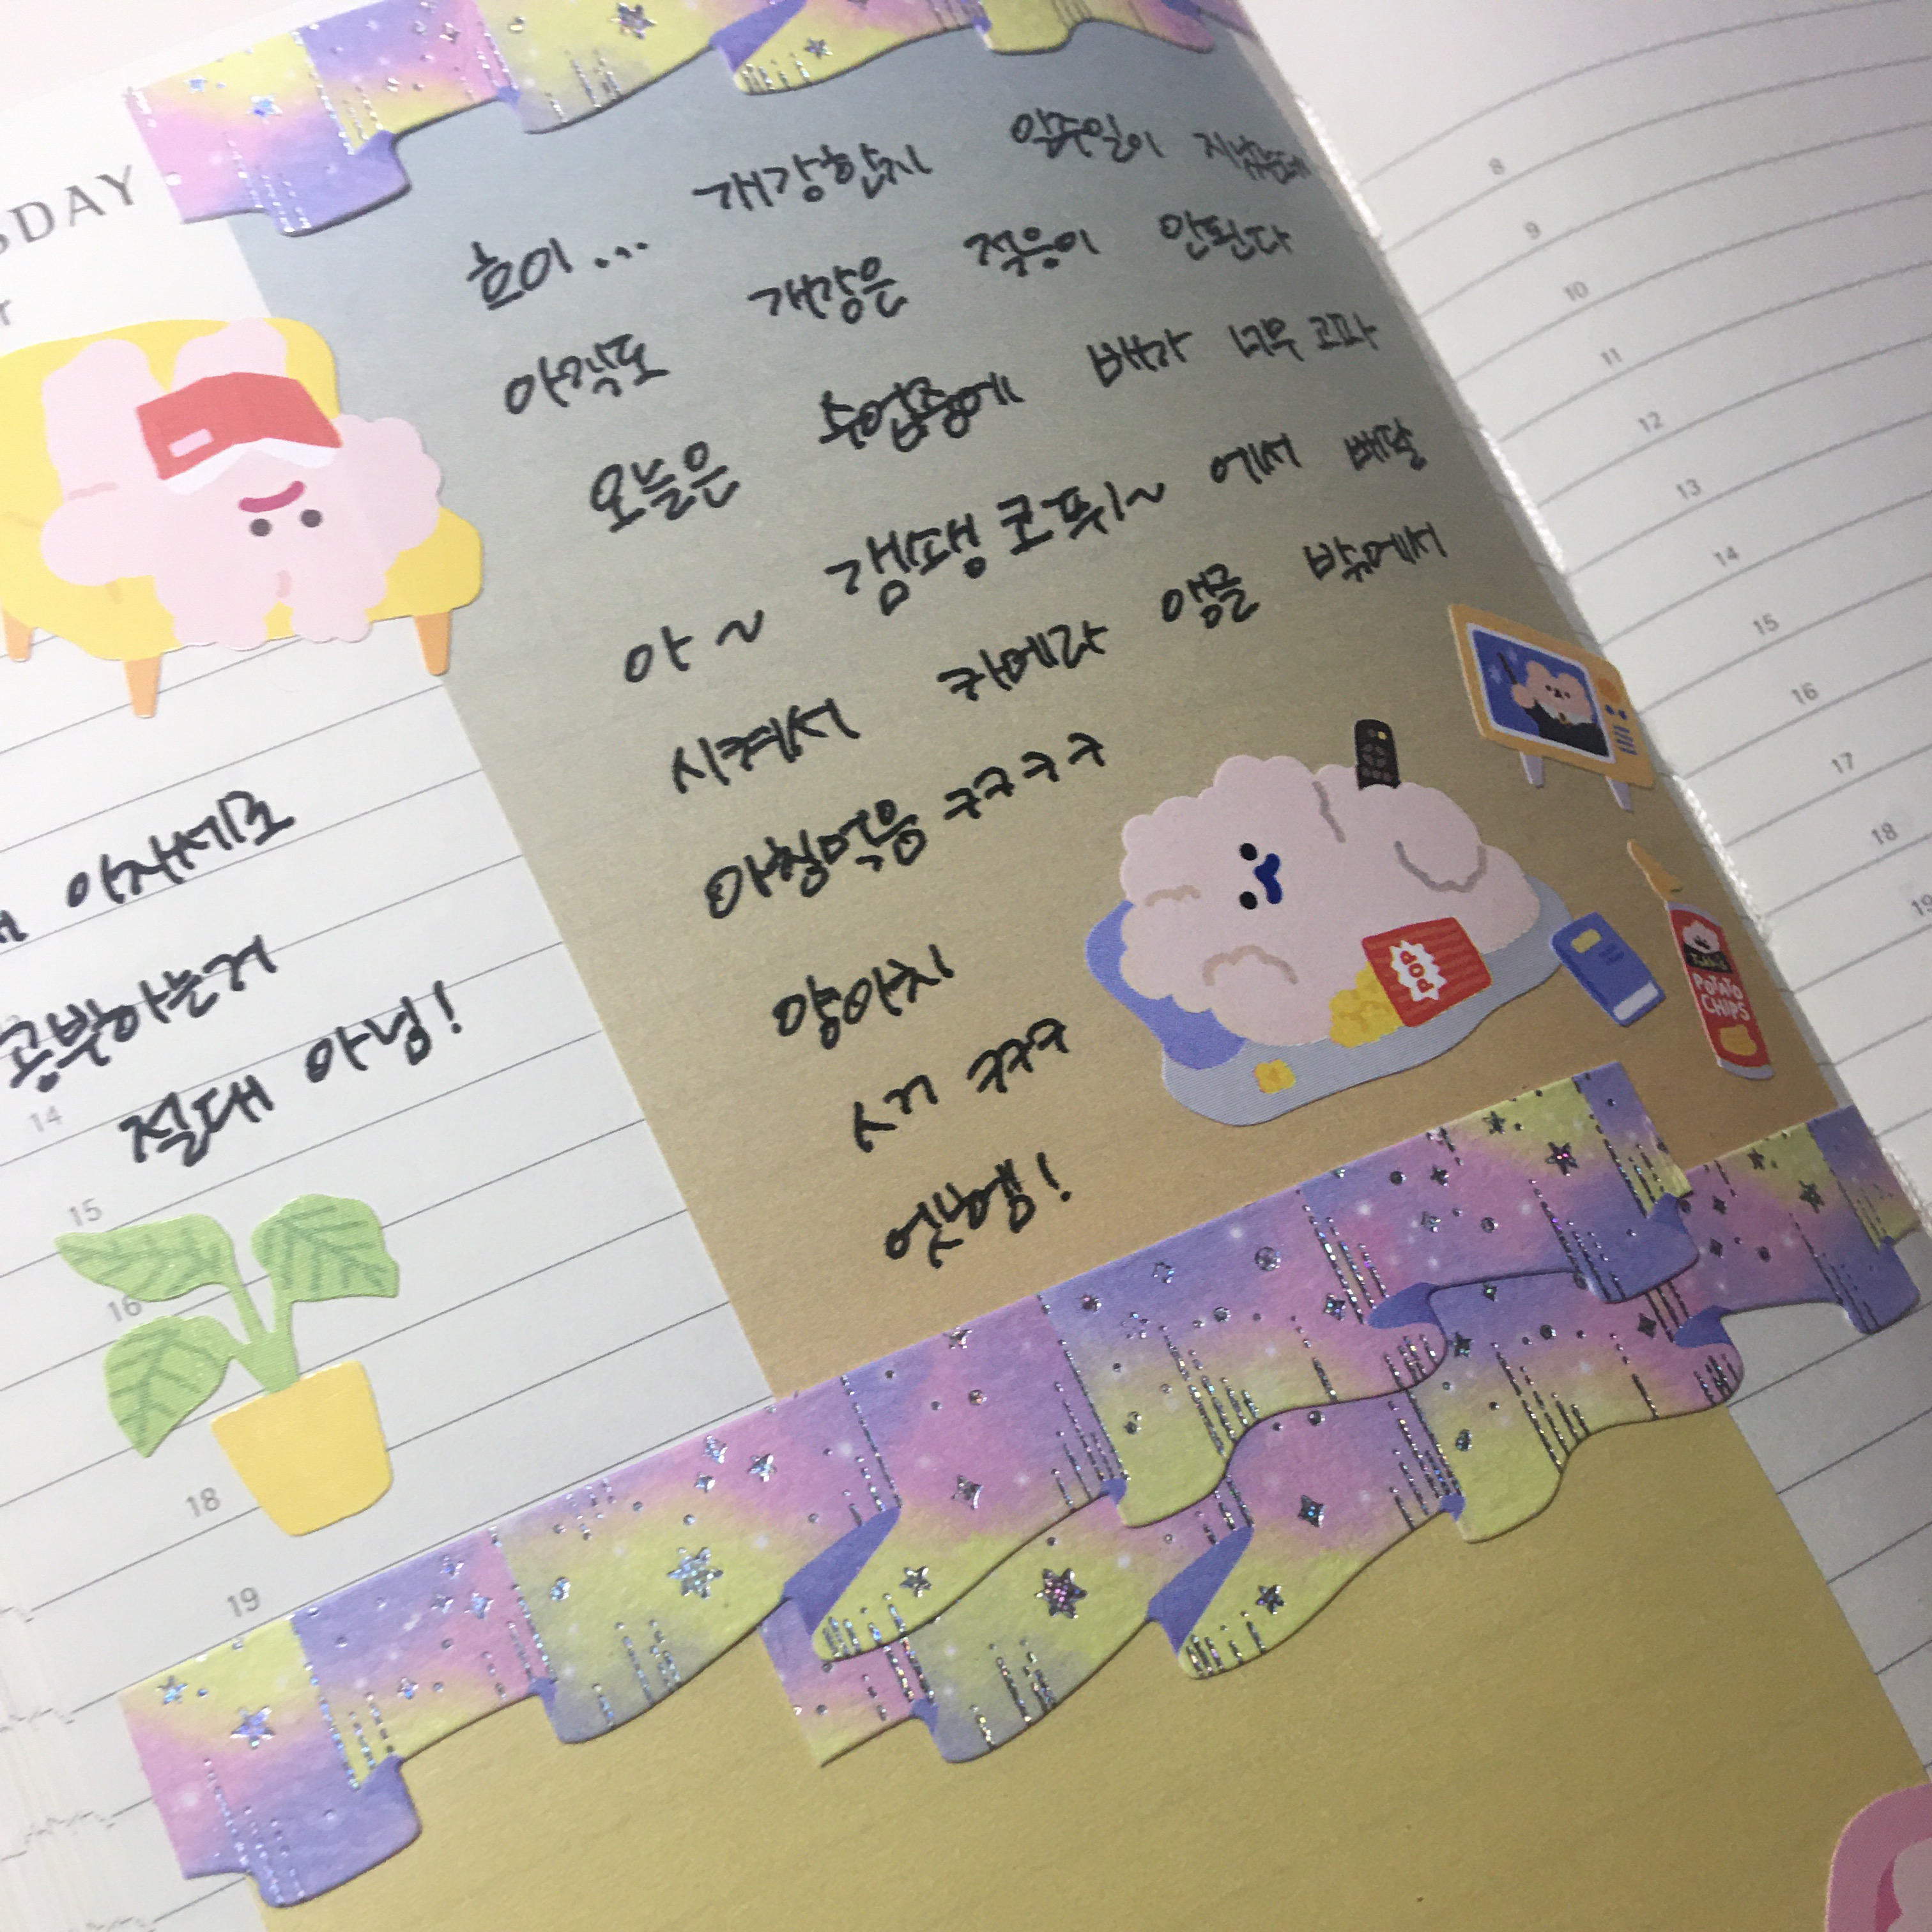 SDAY
흐이... 개강한지 일주일이 지났는데
아직도 개강은 적응이 안된다
오늘은 수업중에 배가 너무 고파
아~ 갱쌩 코퓌~ 에서 배달
시켜서 카메라 앵글 밖에서
아침먹음 ㅋㅋㅋㅋ
양아치
시키 ㅋㅋㅋ
엣헴!
이자세로
공부하는거
절대 아님!
14
15
16
18
19
8
9
10
11
12
13
14
15
16
17
18
19
POP
POTATO
CHIPS